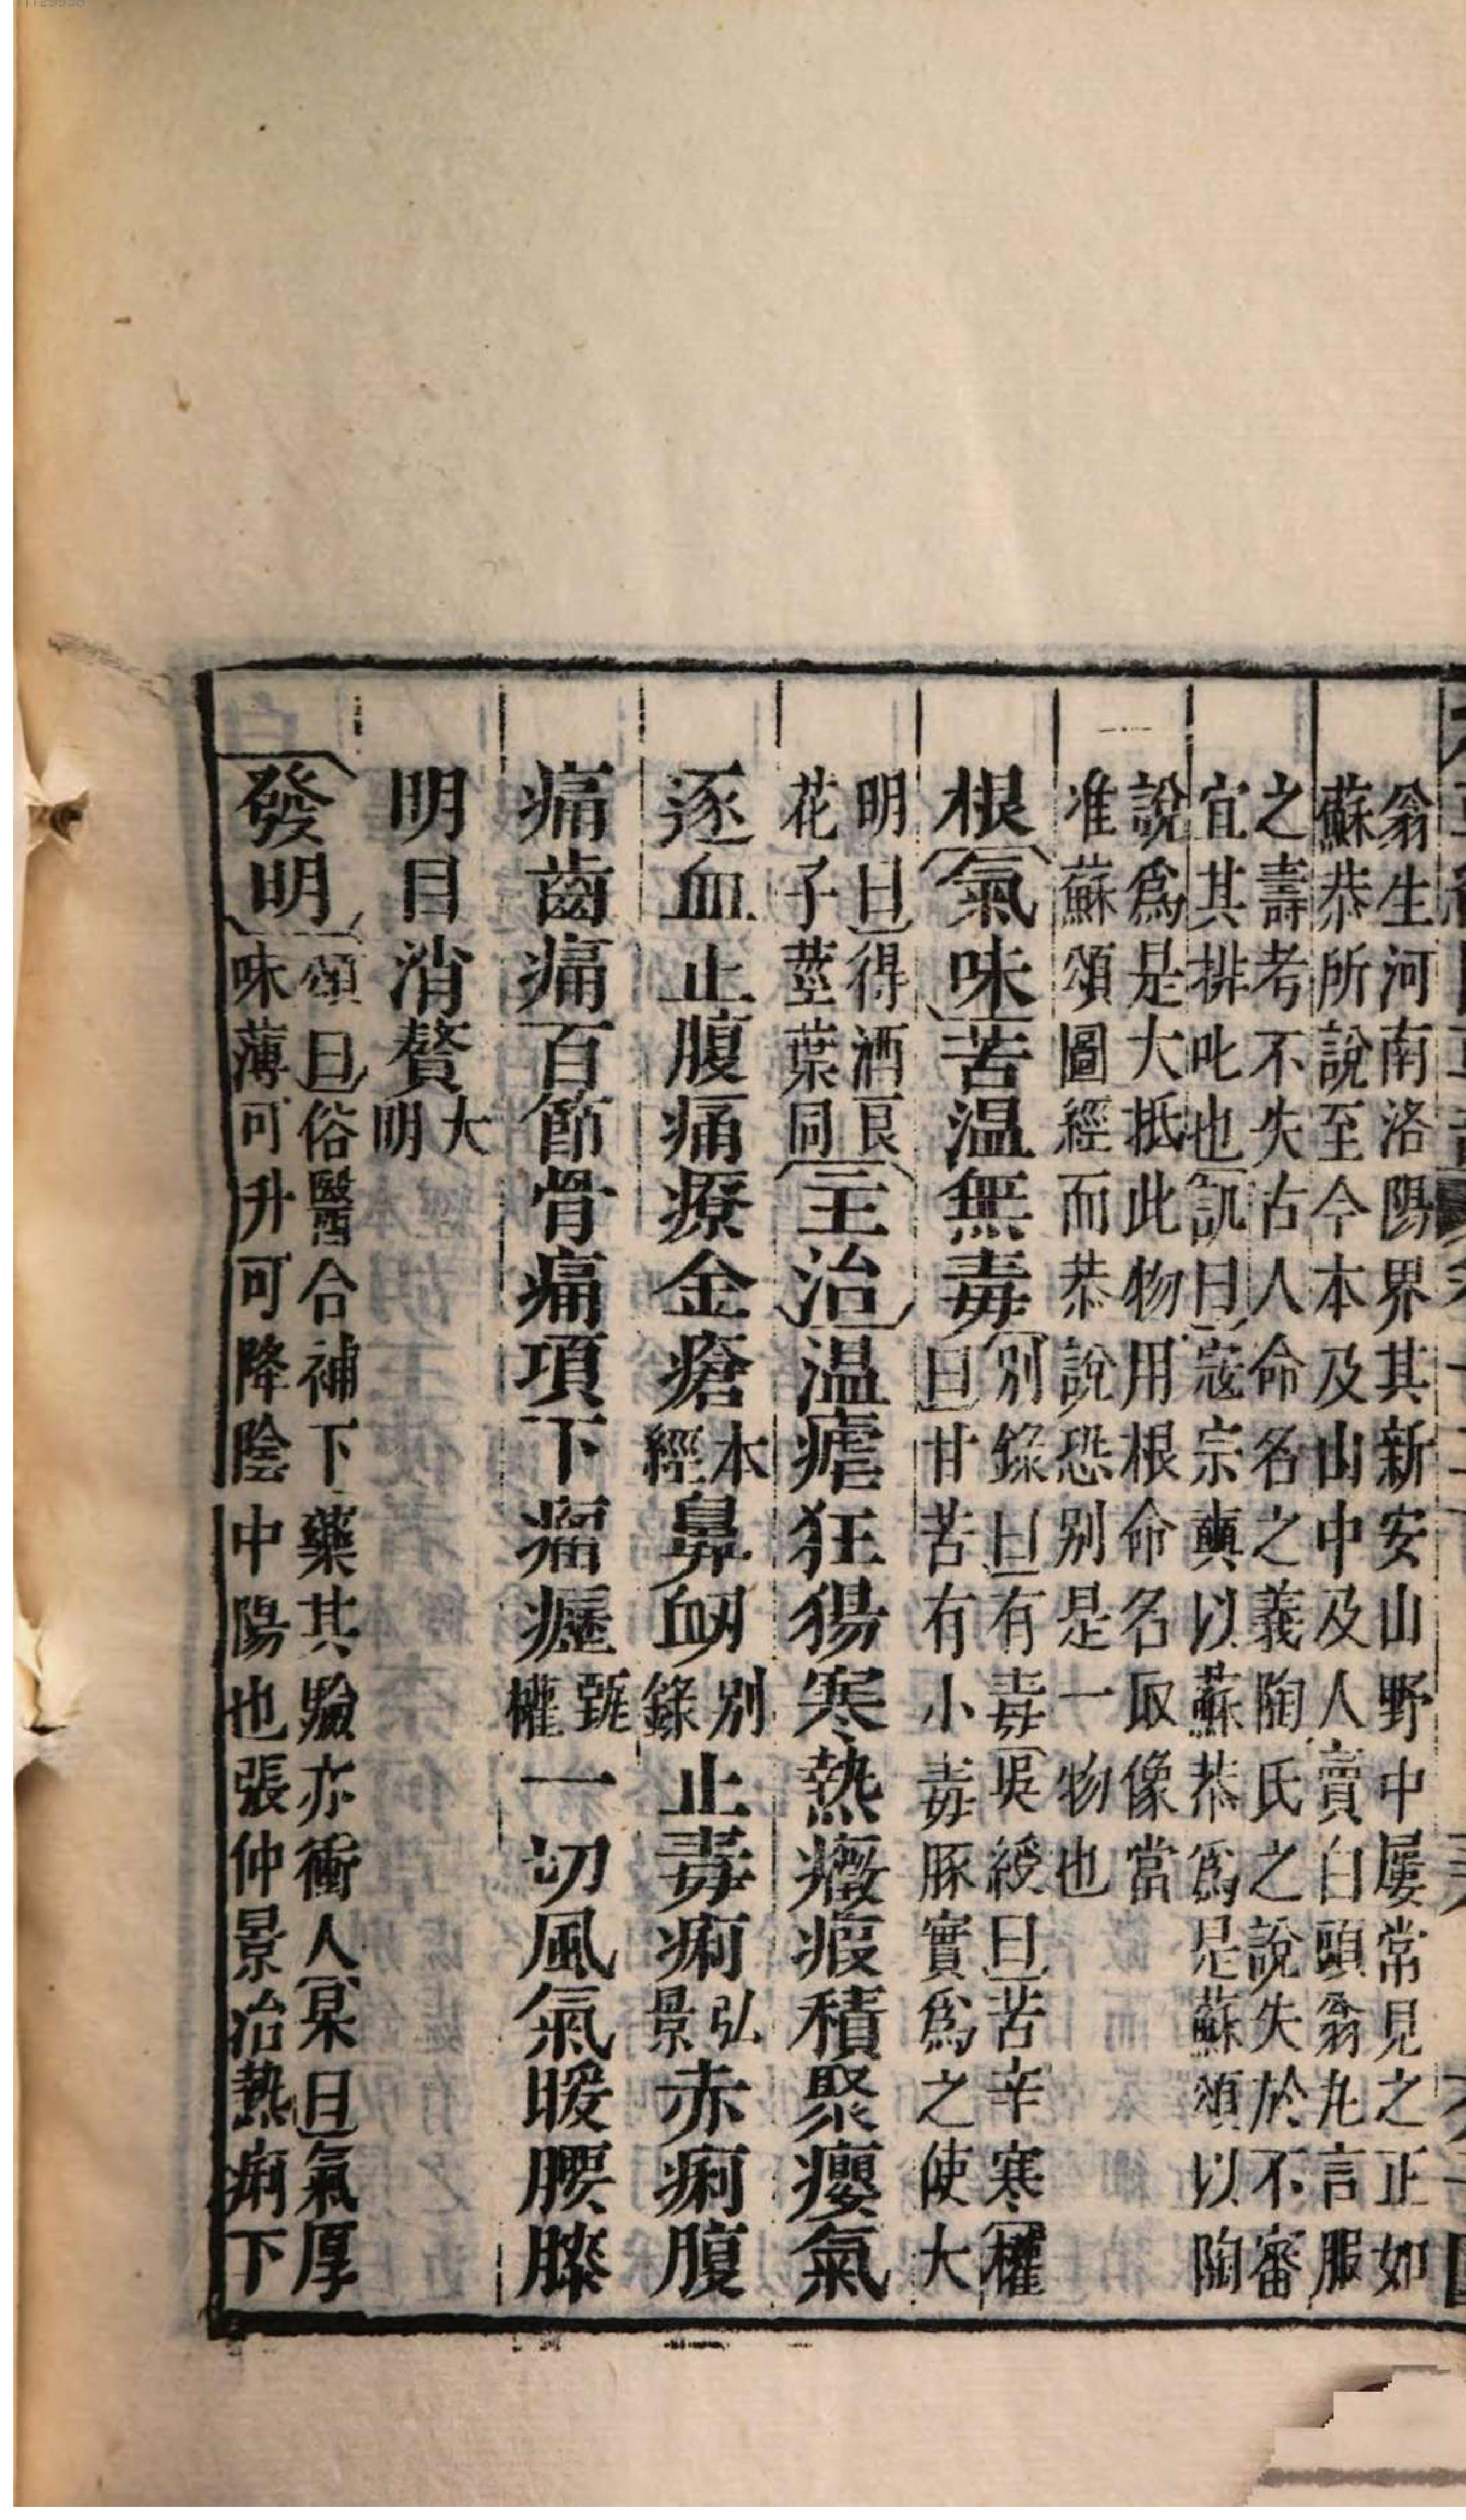 翁生河南洛陽界其新安山野中屢常見之正如
蘇恭所說至今本及山中及人賣白頭翁丸言服
之壽考不失古人命名之義陶氏之說失於不審
宜其排叱也訊曰寇宗奭以蘇恭爲是蘇頌以陶
說爲是大抵此物用根命名取像當
准蘇頌圖經而恭說恐別是一物也
根氣味苦温無毒別錄曰有毒吳綬曰苦辛寒權
曰甘苦有小毒豚實爲之使大
明曰得酒良
花子莖葉同主治温瘧狂猲寒熱癥瘕積聚癭氣
逐血止腹痛療金瘡本經鼻衂別錄止毒痢弘景赤痢腹
痛齒痛百節骨痛項下瘤癧甄權一切風氣暖腰膝
明目消贅大明
發明頌曰俗醫合補下藥其驗亦衝人杲曰氣厚
味薄可升可降陰中陽也張仲景治熱痢下